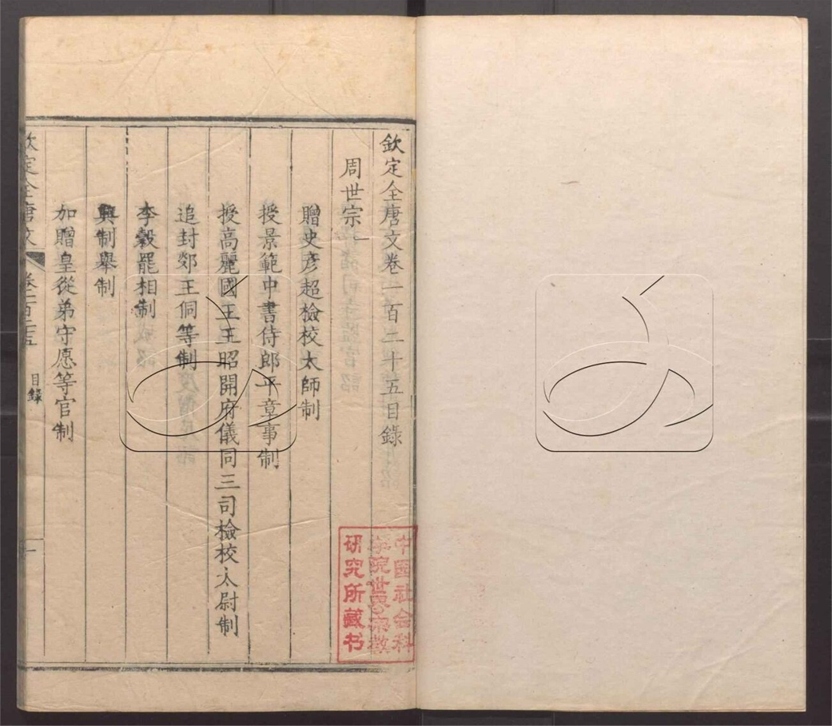 欽定全唐文卷一百二十五目錄
周世宗一
贈史彦超檢校太師制
授景範中書侍郎平章事制
授高麗國王王昭開府儀同三司檢校太尉制
追封郯王侗等制
李穀罷相制
興制舉制
加贈皇從弟守愿等官制
欽定全唐文
卷一百二十五
目錄
一
中国社会科
学院世界宗教
研究所藏书